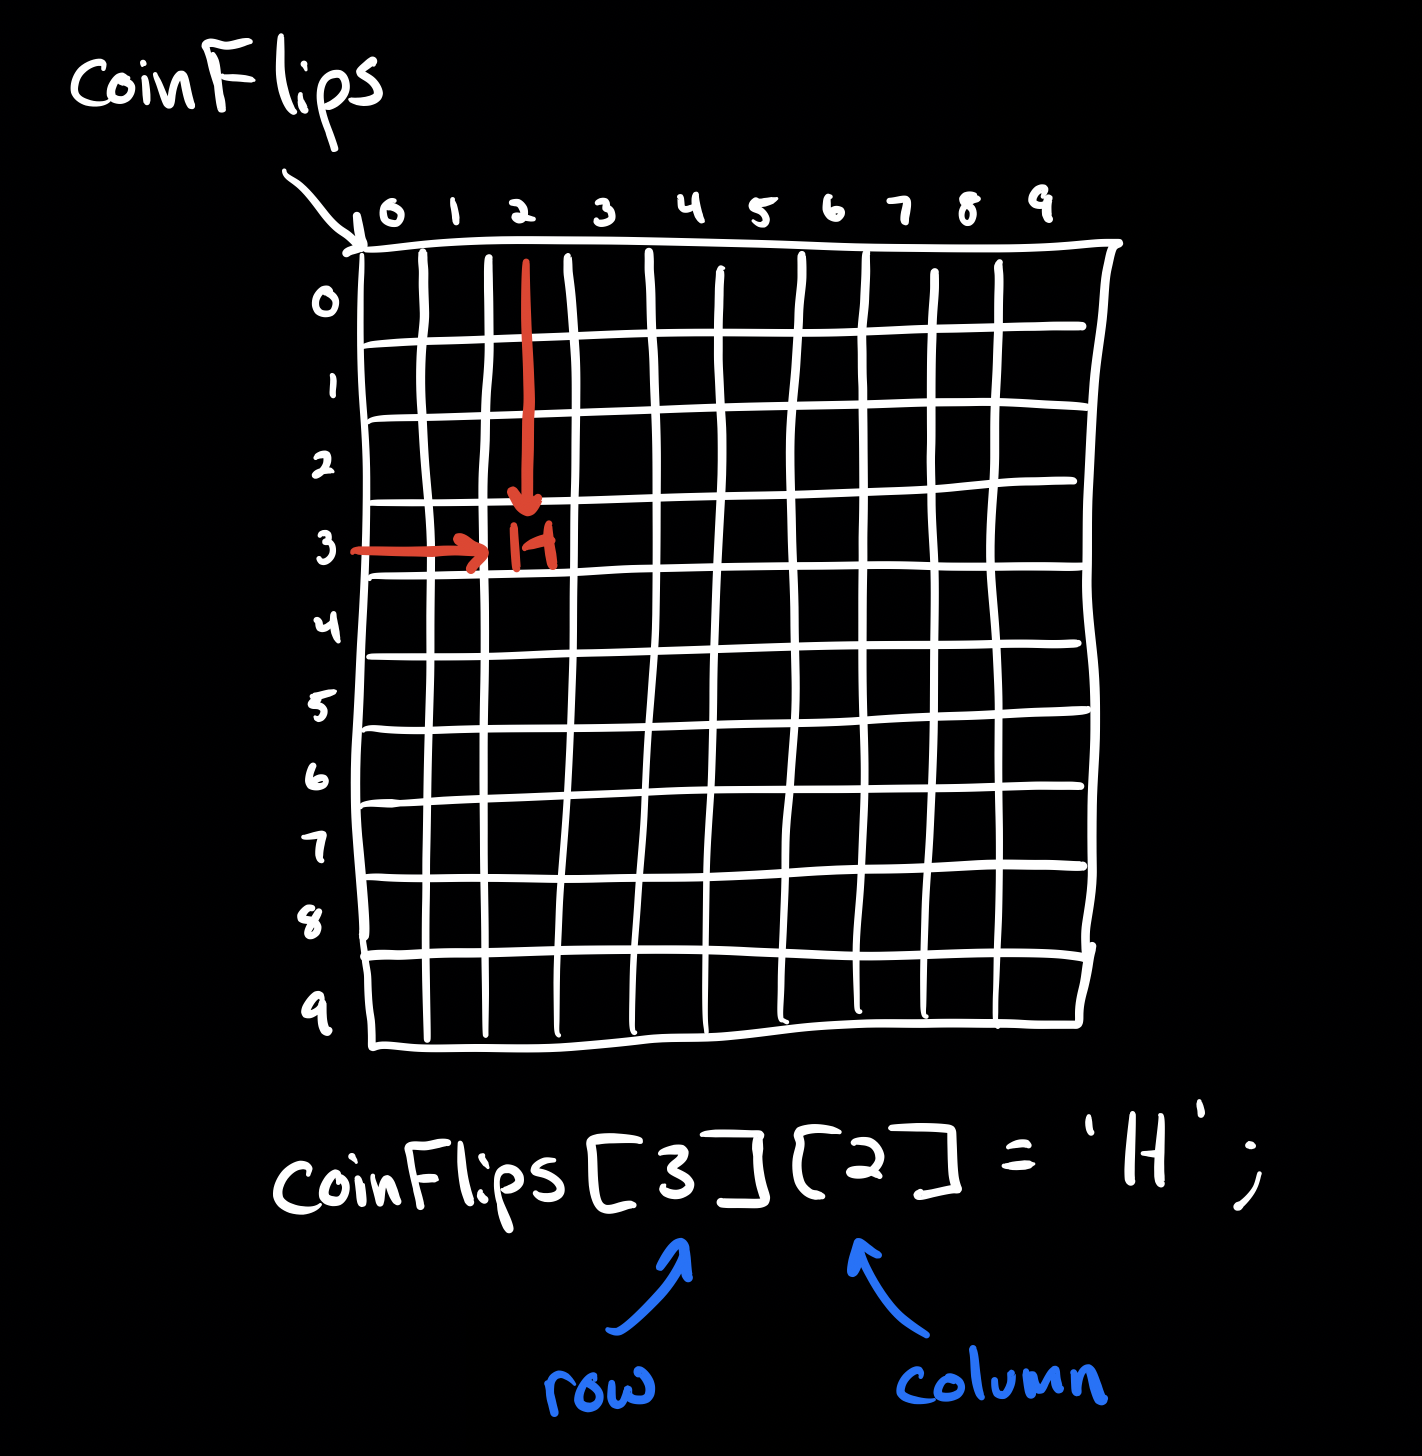 coinFlips
0 1 2 3 4 5 6 7 8 9
0
1
2
3 H
4
5
6
7
8
9
coinFlips[3][2] = 'H';
row column